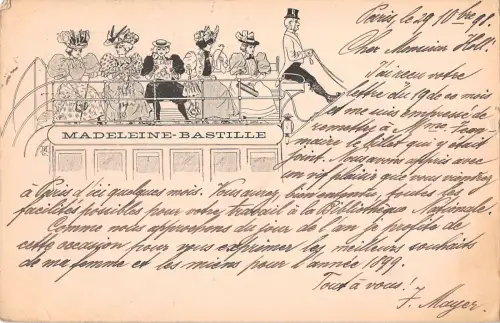 Paris, le 29 Xbre 98.
Cher Monsieur Holl.
J'ai reçu votre
lettre du 19 de ce mois
et me suis empressé de
remettre à Mme
maire le billet qui y était
joint. Nous avons appris avec
MADELEINE-BASTILLE
un vif plaisir que vous viendrez
à Paris d'ici quelques mois. Vous aurez, bien entendu, toutes les
facilités possibles pour votre travail à la Bibliothèque Nationale.
Comme nous approchons du jour de l'an je profite de
cette occasion pour vous exprimer les meilleurs souhaits
de ma femme et les miens pour l'année 1899.
Tout à vous!
F. Mayer